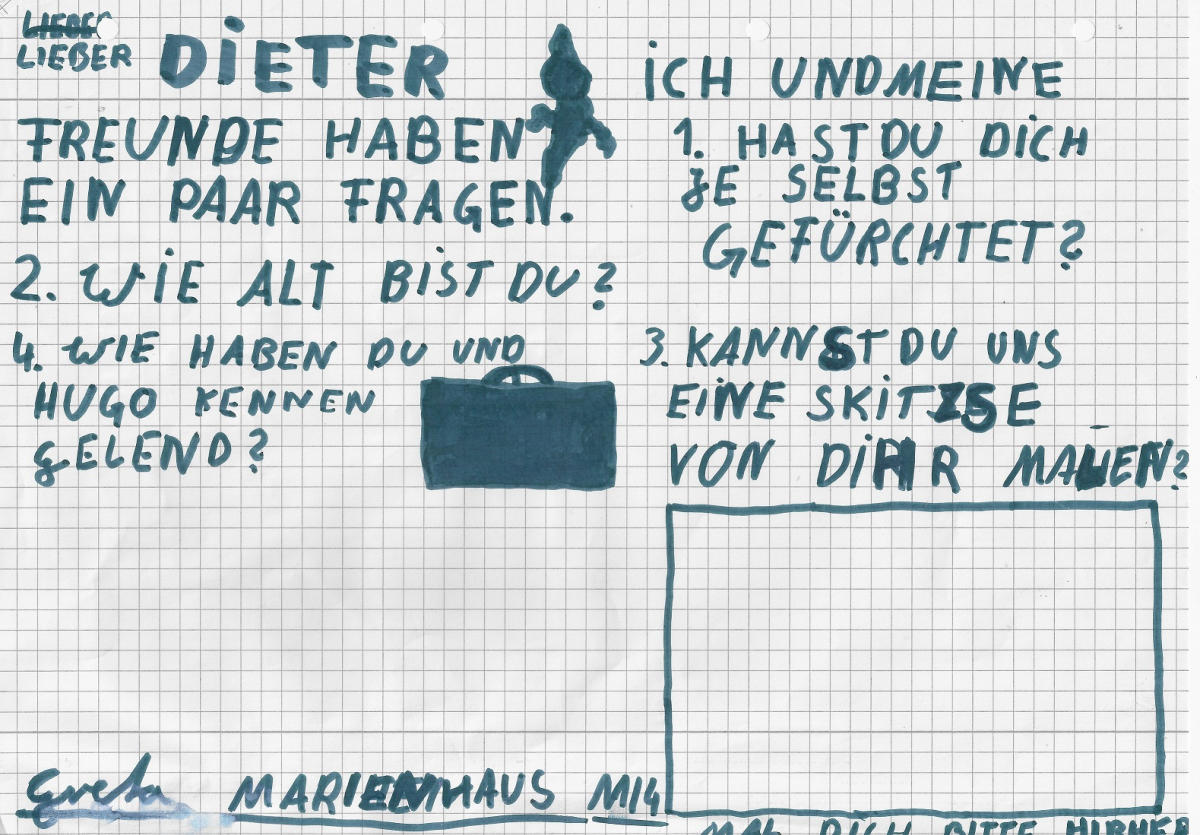 LIEBER
LIEBER DIETER
ICH UND MEINE
FREUNDE HABEN
EIN PAAR FRAGEN.
1. HAST DU DICH
JE SELBST
GEFÜRCHTET?
2. WIE ALT BIST DU?
3. KANNST DU UNS
EINE SKITZSE
VON DIR MALEN?
4. WIE HABEN DU UND
HUGO KENNEN
GELEND?
Greta MARIENHAUS M14
MAL DICH BITTE